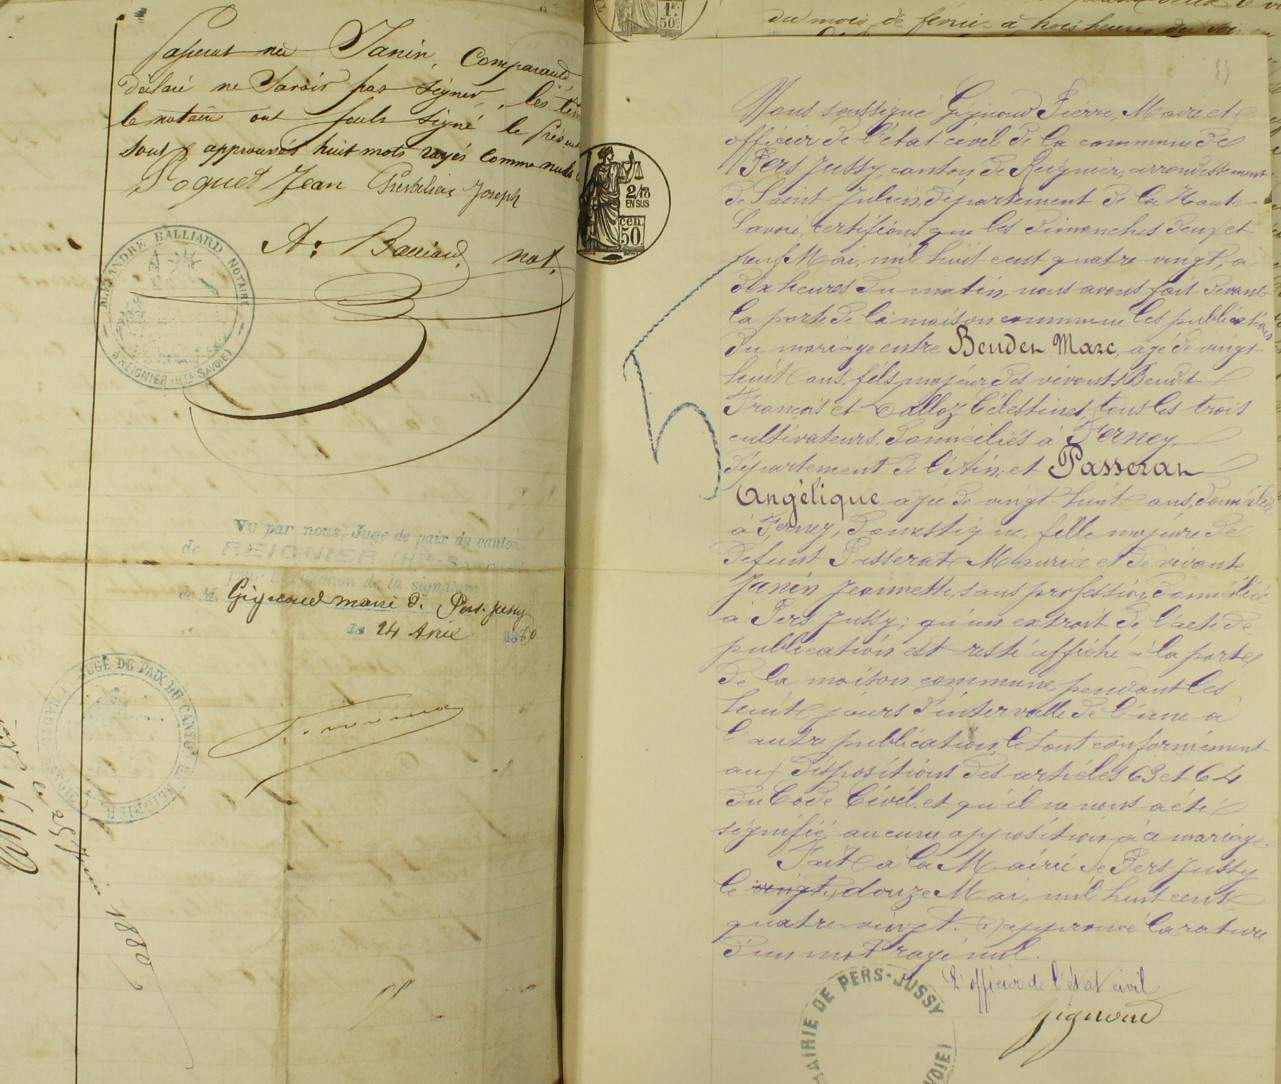 Passerat née Janin, Comparante,
déclaré ne savoir pas signer, les tém
le notaire ont seuls signé le présent
sont approuvés huit mots rayés comme nuls
Poquet Jean Chevalier Joseph
A. Balliard not.
ALEXANDRE BALLIARD NOTAIRE
A REIGNIER (HTE SAVOIE)
Vu par nous, Juge de paix du canton
de REIGNIER (Hte-Savoie)
de la signature
de M. Gignoud maire de Pers-Jussy
Le 24 Avril 1880
JUGE DE PAIX DU CANTON DE REIGNIER
1880
du mois de février à trois heures du soir
1F.
50c
2/10
EN SUS
50
cen
5
Nous soussigné Gignoud Pierre, Maire et
officier de l'état civil de la commune de
Pers Jussy, canton de Reignier, arrondissement
de Saint-Julien, département de la Haute-
Savoie, certifions que les dimanches deux et
neuf Mai, mil huit cent quatre vingt, à
dix heures du matin, nous avons fait devant
la porte de la maison commune les publications
du mariage entre Beudet Marc, âgé de vingt
huit ans, fils majeur des vivants Beudet
François et Dalloz Célestine, tous les trois
cultivateurs, domiciliés à Ferney
département de l'Ain, et Passerat
Angélique, âgée de vingt-huit ans, domiciliée
à Ferney, Domestique, fille majeure de
défunt Passerat Maurice et de vivante
Janin Jeannette, sans profession, domiciliée
à Pers Jussy; qu'un extrait de l'acte de
publication est resté affiché à la porte
de la maison commune pendant les
huit jours d'intervalle de l'une à
l'autre publication, le tout conformément
aux dispositions des articles 63 et 64
du Code Civil, et qu'il ne nous a été
signifié aucune opposition à ce mariage.
Fait à la Mairie de Pers Jussy
le vingt, douze Mai, mil huit cent
quatre-vingt. approuvé la rature
d'un mot rayé nul.
L'officier de l'état civil
Gignoud
MAIRIE DE PERS-JUSSY